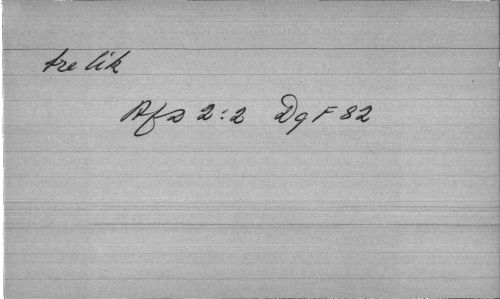 tre lik
Afs 2:2 DgF 82